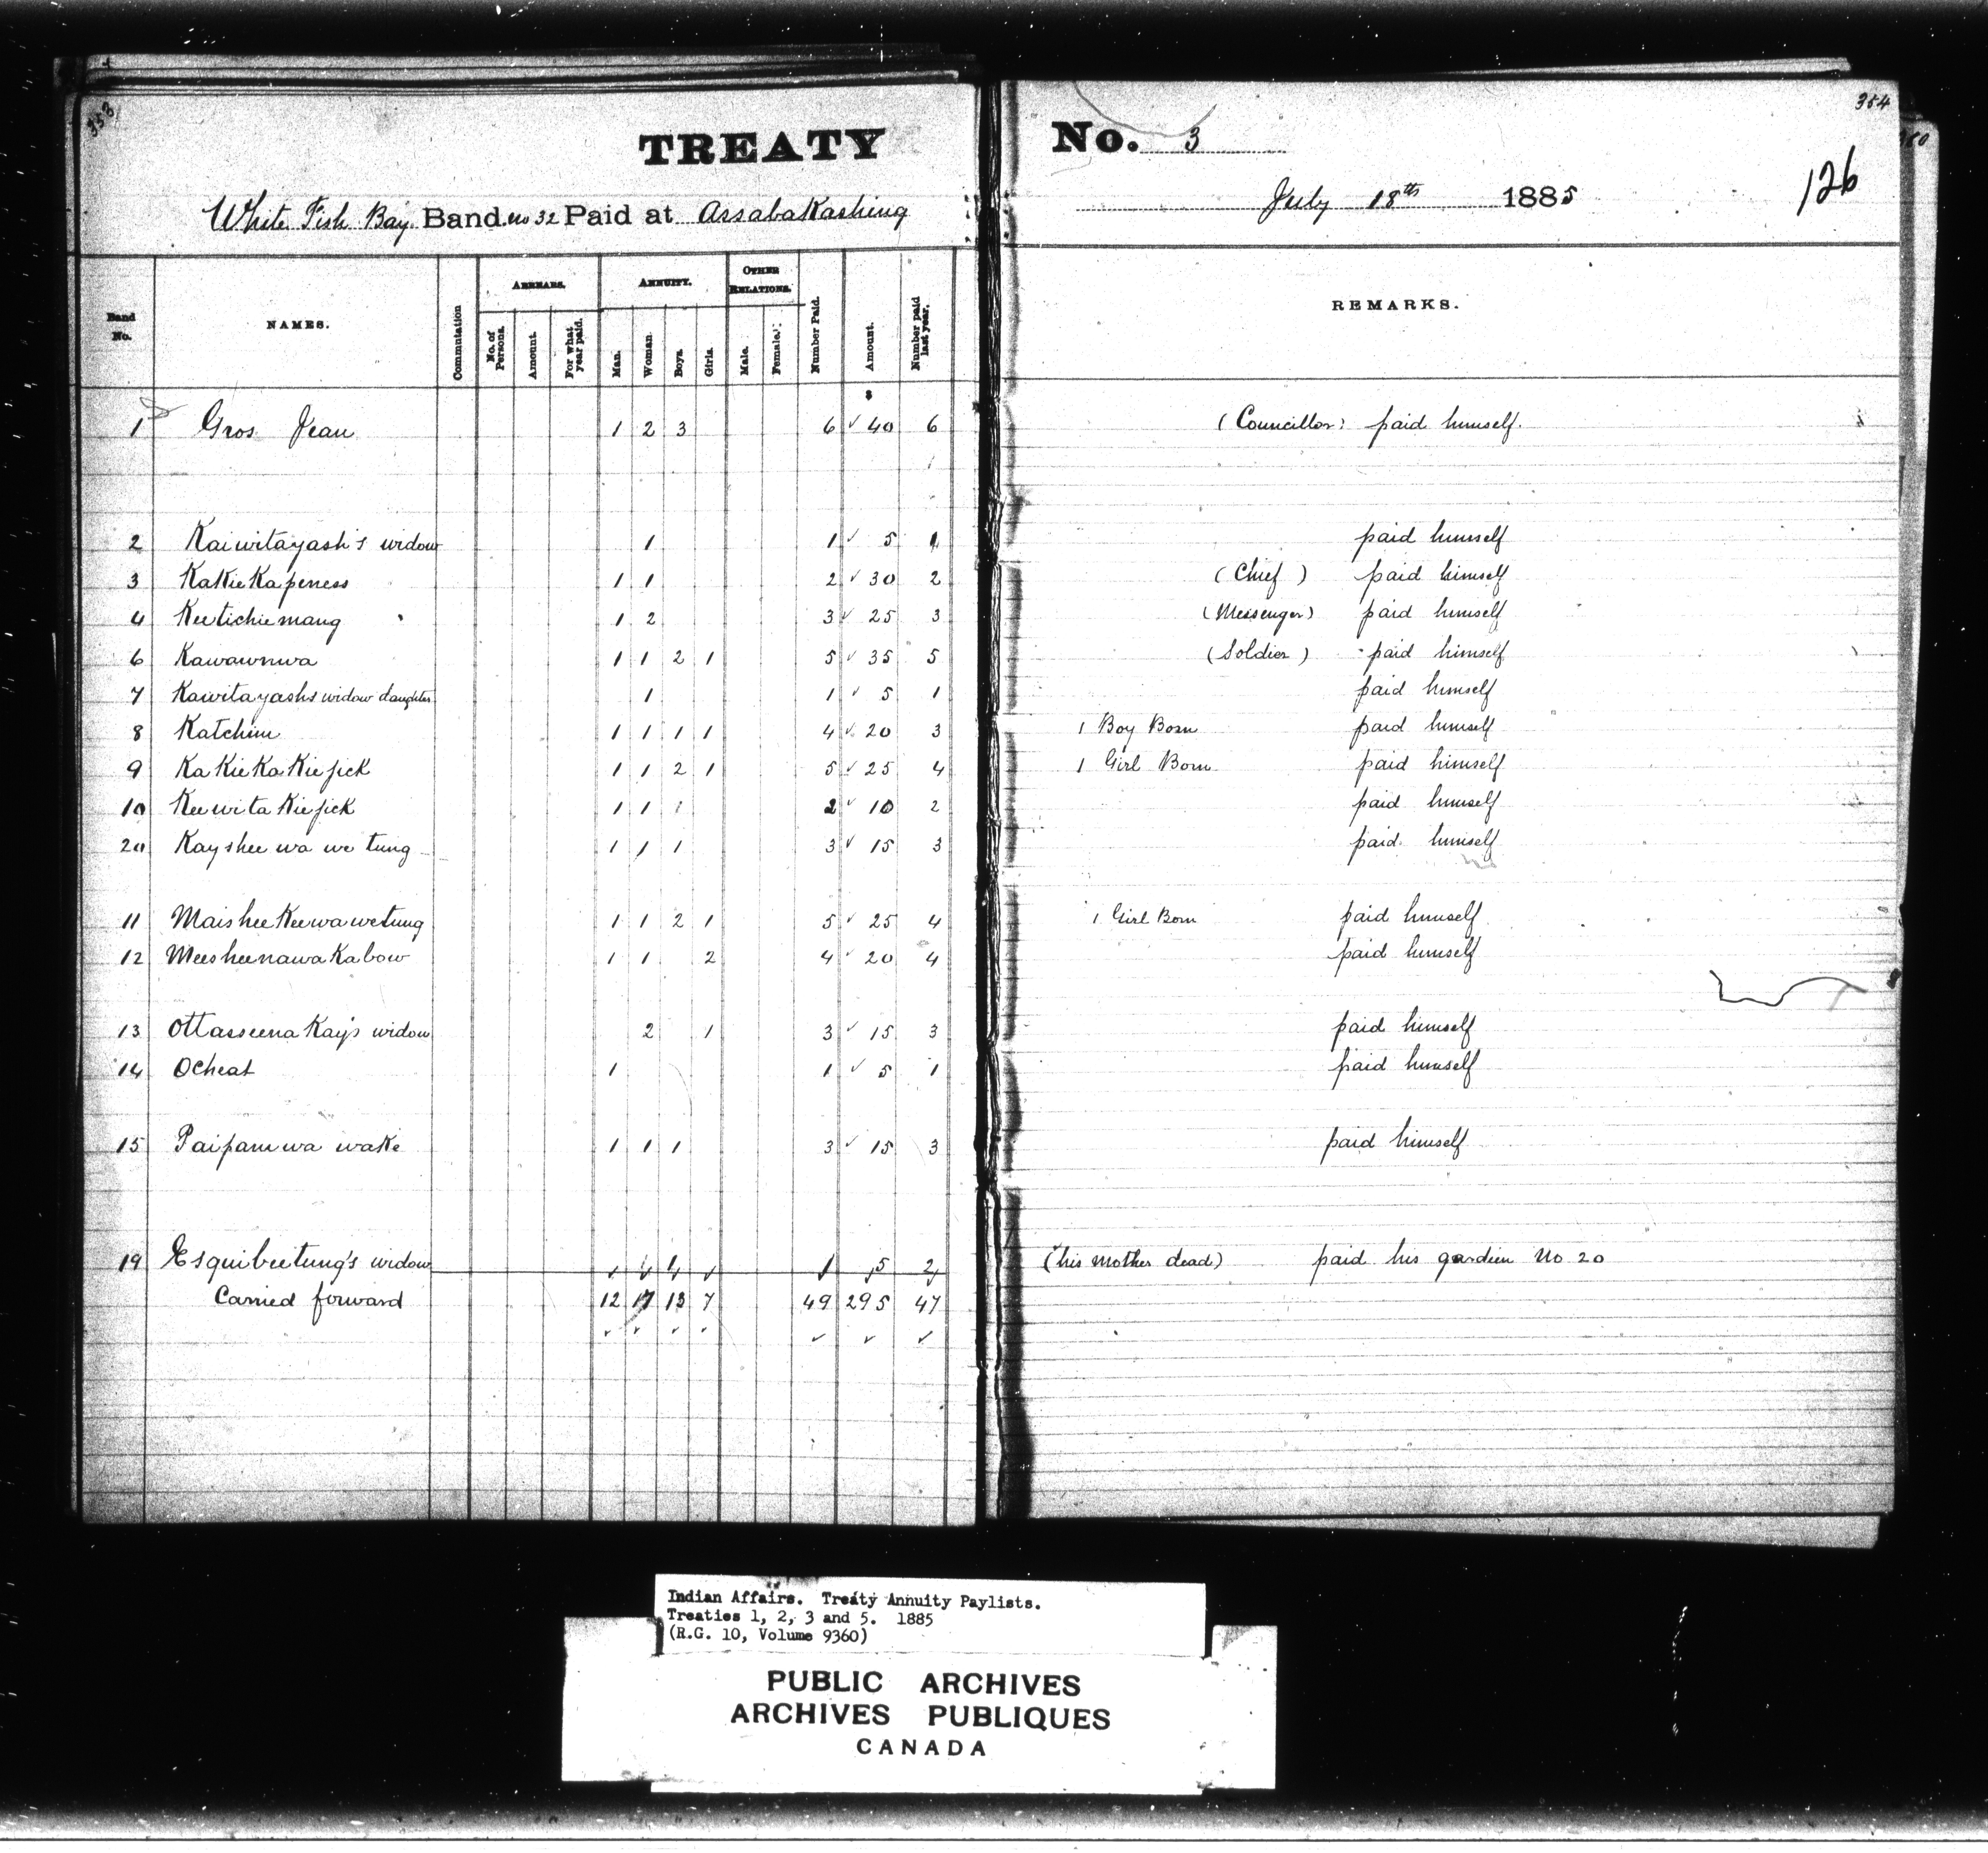 353
354
TREATY No. 3
126
White Fish Bay Band no 32 Paid at Assabakashing July 18th 1885
Band No. NAMES. Commutation ARREARS. No. of Persons. Amount. For what year paid. ANNUITY. Man. Woman. Boys. Girls. OTHER RELATIONS. Male. Female. Number Paid. Amount. Number paid last year. REMARKS.
$
1 Gros Jean 1 2 3 6 ✓ 40 6 (Councillor) paid himself.
2 Kaiwitayash's widow 1 1 ✓ 5 1 paid himself
3 KaKieKapeness 1 1 2 ✓ 30 2 (Chief) paid himself
4 Keetichiemang 1 2 3 ✓ 25 3 (Messenger) paid himself
6 Kawawnwa 1 1 2 1 5 ✓ 35 5 (Soldier) paid himself
7 Kawitayashs widow daughter 1 1 ✓ 5 1 paid himself
8 Katchim 1 1 1 1 4 ✓ 20 3 1 Boy Born paid himself
9 KaKieKaKiejick 1 1 2 1 5 ✓ 25 4 1 Girl Born paid himself
10 KeewitaKiejick 1 1 2 ✓ 10 2 paid himself
20 Kayshee wa we tung 1 1 1 3 ✓ 15 3 paid himself
11 MaisheeKeewawetung 1 1 2 1 5 ✓ 25 4 1 Girl Born paid himself
12 MeesheenawaKabow 1 1 2 4 ✓ 20 4 paid himself
13 OttasseenaKay's widow 2 1 3 ✓ 15 3 paid himself
14 Ocheat 1 1 ✓ 5 1 paid himself
15 Paipamwa waKe 1 1 1 3 ✓ 15 3 paid himself
19 Esquibeetung's widow 1 5 2 (his mother dead) paid his gardien No 20
Carried forward 12 13 7 49 295 47
✓ ✓ ✓ ✓ ✓ ✓ ✓
Indian Affairs. Treaty Annuity Paylists.
Treaties 1, 2, 3 and 5. 1885
(R.G. 10, Volume 9360)
PUBLIC ARCHIVES
ARCHIVES PUBLIQUES
CANADA